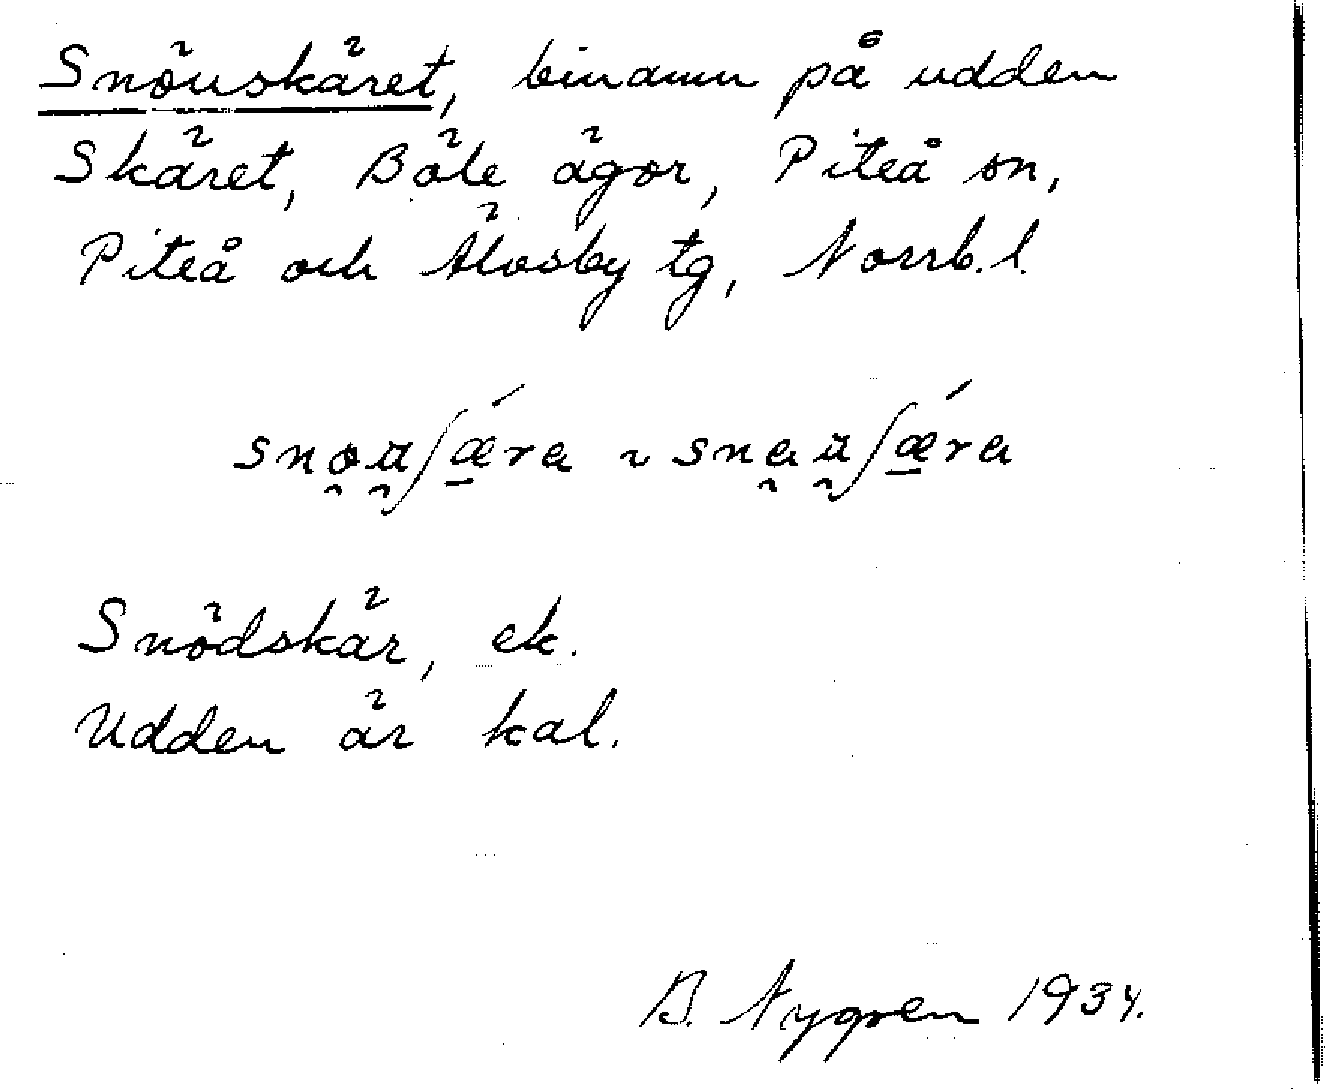 Snöuskäret, binamn på udden
Skäret, Böle ägor, Piteå sn,
Piteå och Älvsby tg, Norrb.l.
snou̯ʃǽra ~ snau̯ʃǽra
Snödskär, ek.
Udden är kal.
B. Nygren 1934.